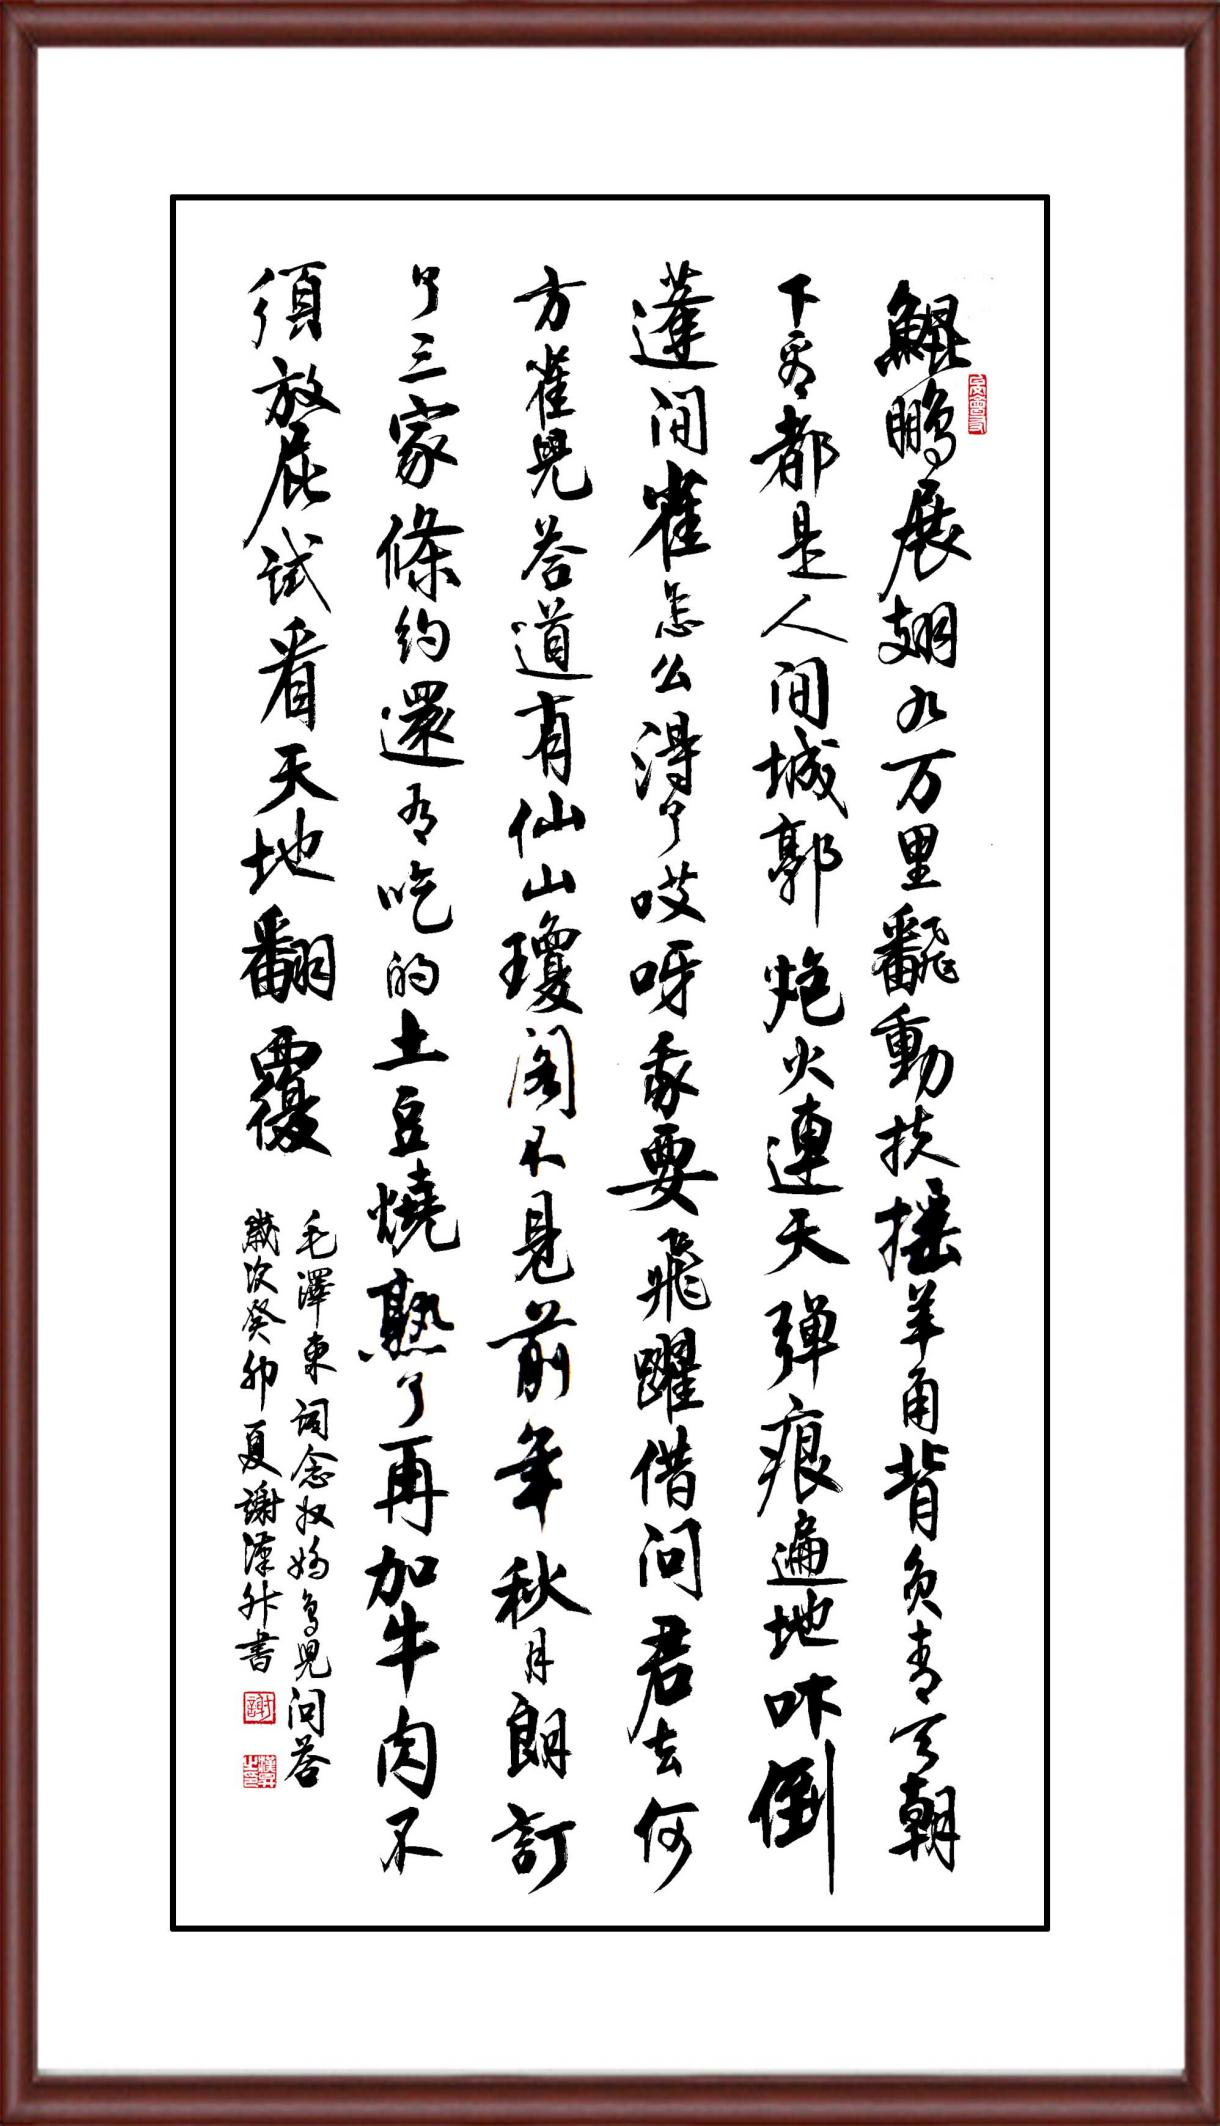 鯤鹏展翅九万里飜動扶摇羊角背負青天朝
下看都是人间城郭炮火連天弹痕遍地吓倒
蓬间雀怎么得了哎呀我要飛躍借问君去何
方雀兒荅道有仙山瓊阁不見前年秋月朗訂
了三家條约還有吃的土豆燒熟了再加牛肉不
須放屁试看天地翻覆
毛澤東词念奴娇鸟兒问荅
歲次癸卯夏謝漢升书
謝